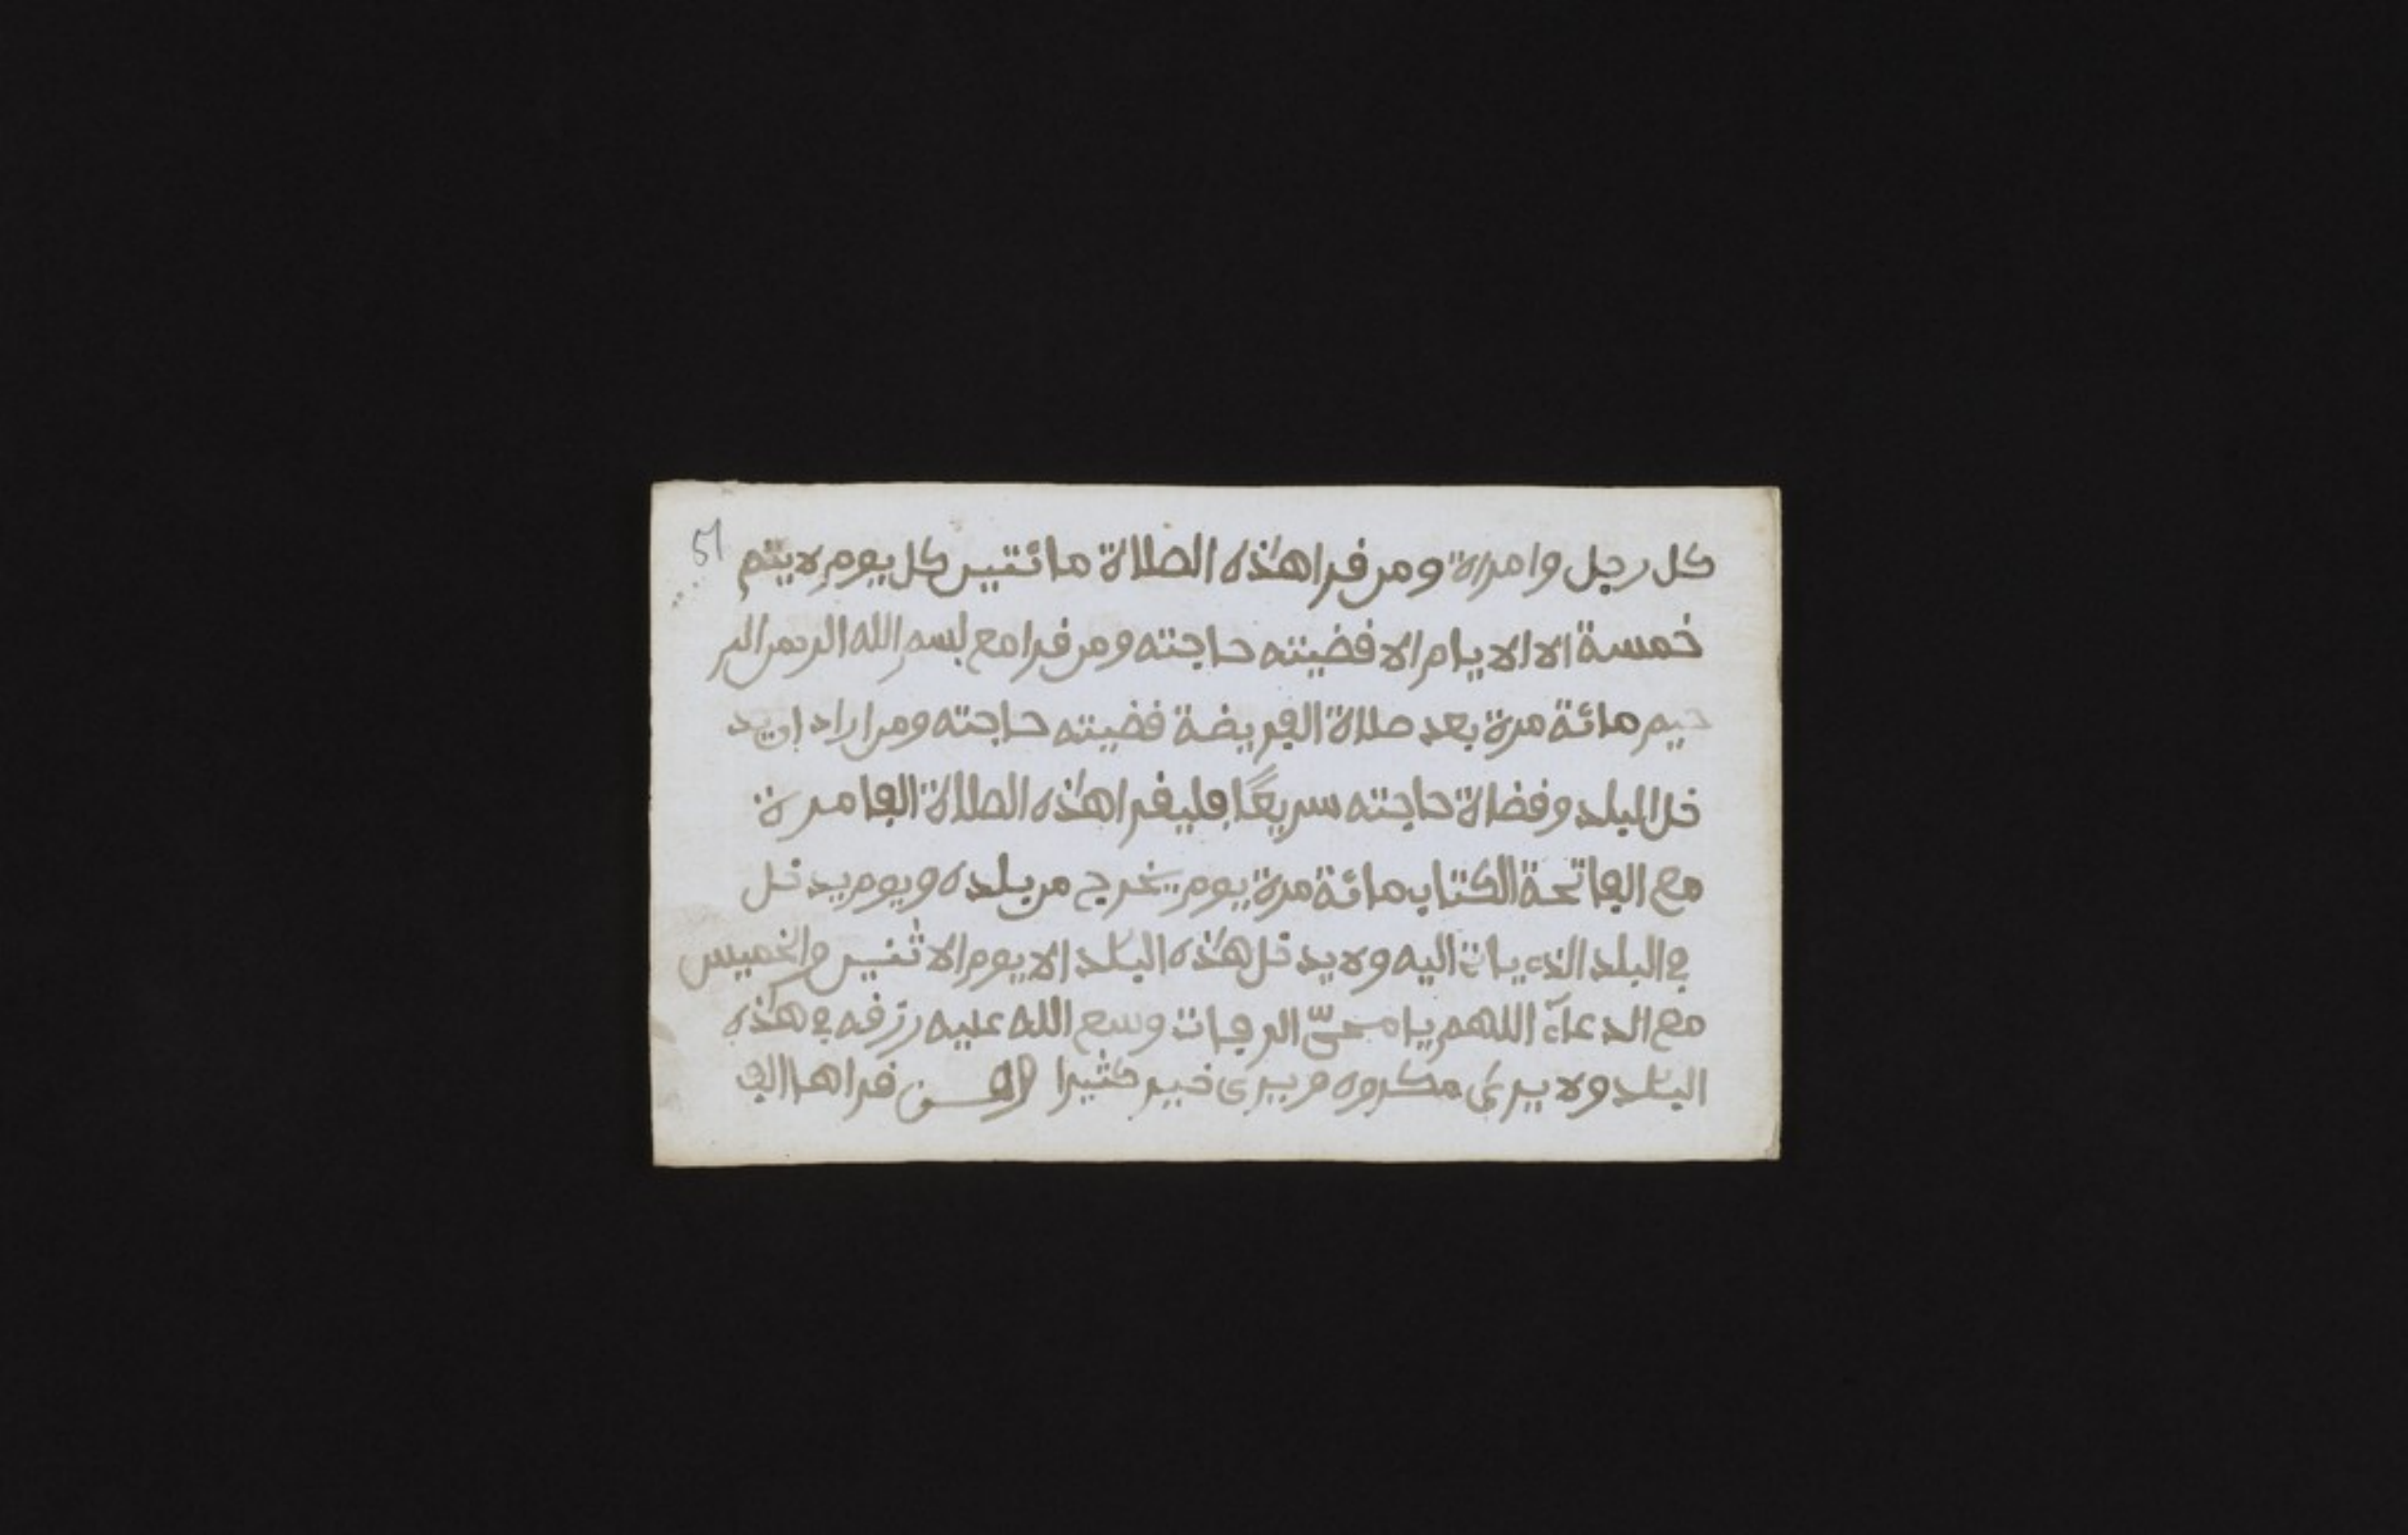 51
كل رجل وامراة ومن قرا هذه الصلاة مائتين كل يوم لا يتم
خمسة الا الايام الا قضيته حاجته ومن قرا مع بسم الله الرحمن الر
حيم مائة مرة بعد صلاة الفريضة قضيته حاجته ومن اراد ان يد
خل البلد وقضاة حاجته سريعًا فليقرا هذه الصلاة الفا مرة
مع الفاتحة الكتاب مائة مرة يوم يخرج من بلده ويوم يدخل
في البلد الذي يات اليه ولا يدخل هذه البلد الا يوم الاثنين والخميس
مع الدعاء اللهم يا محيّ الرفات وسع الله عليه رزقه في هذه
البلد ولا يرى مكروه ويرى خير كثيرا قراها الف